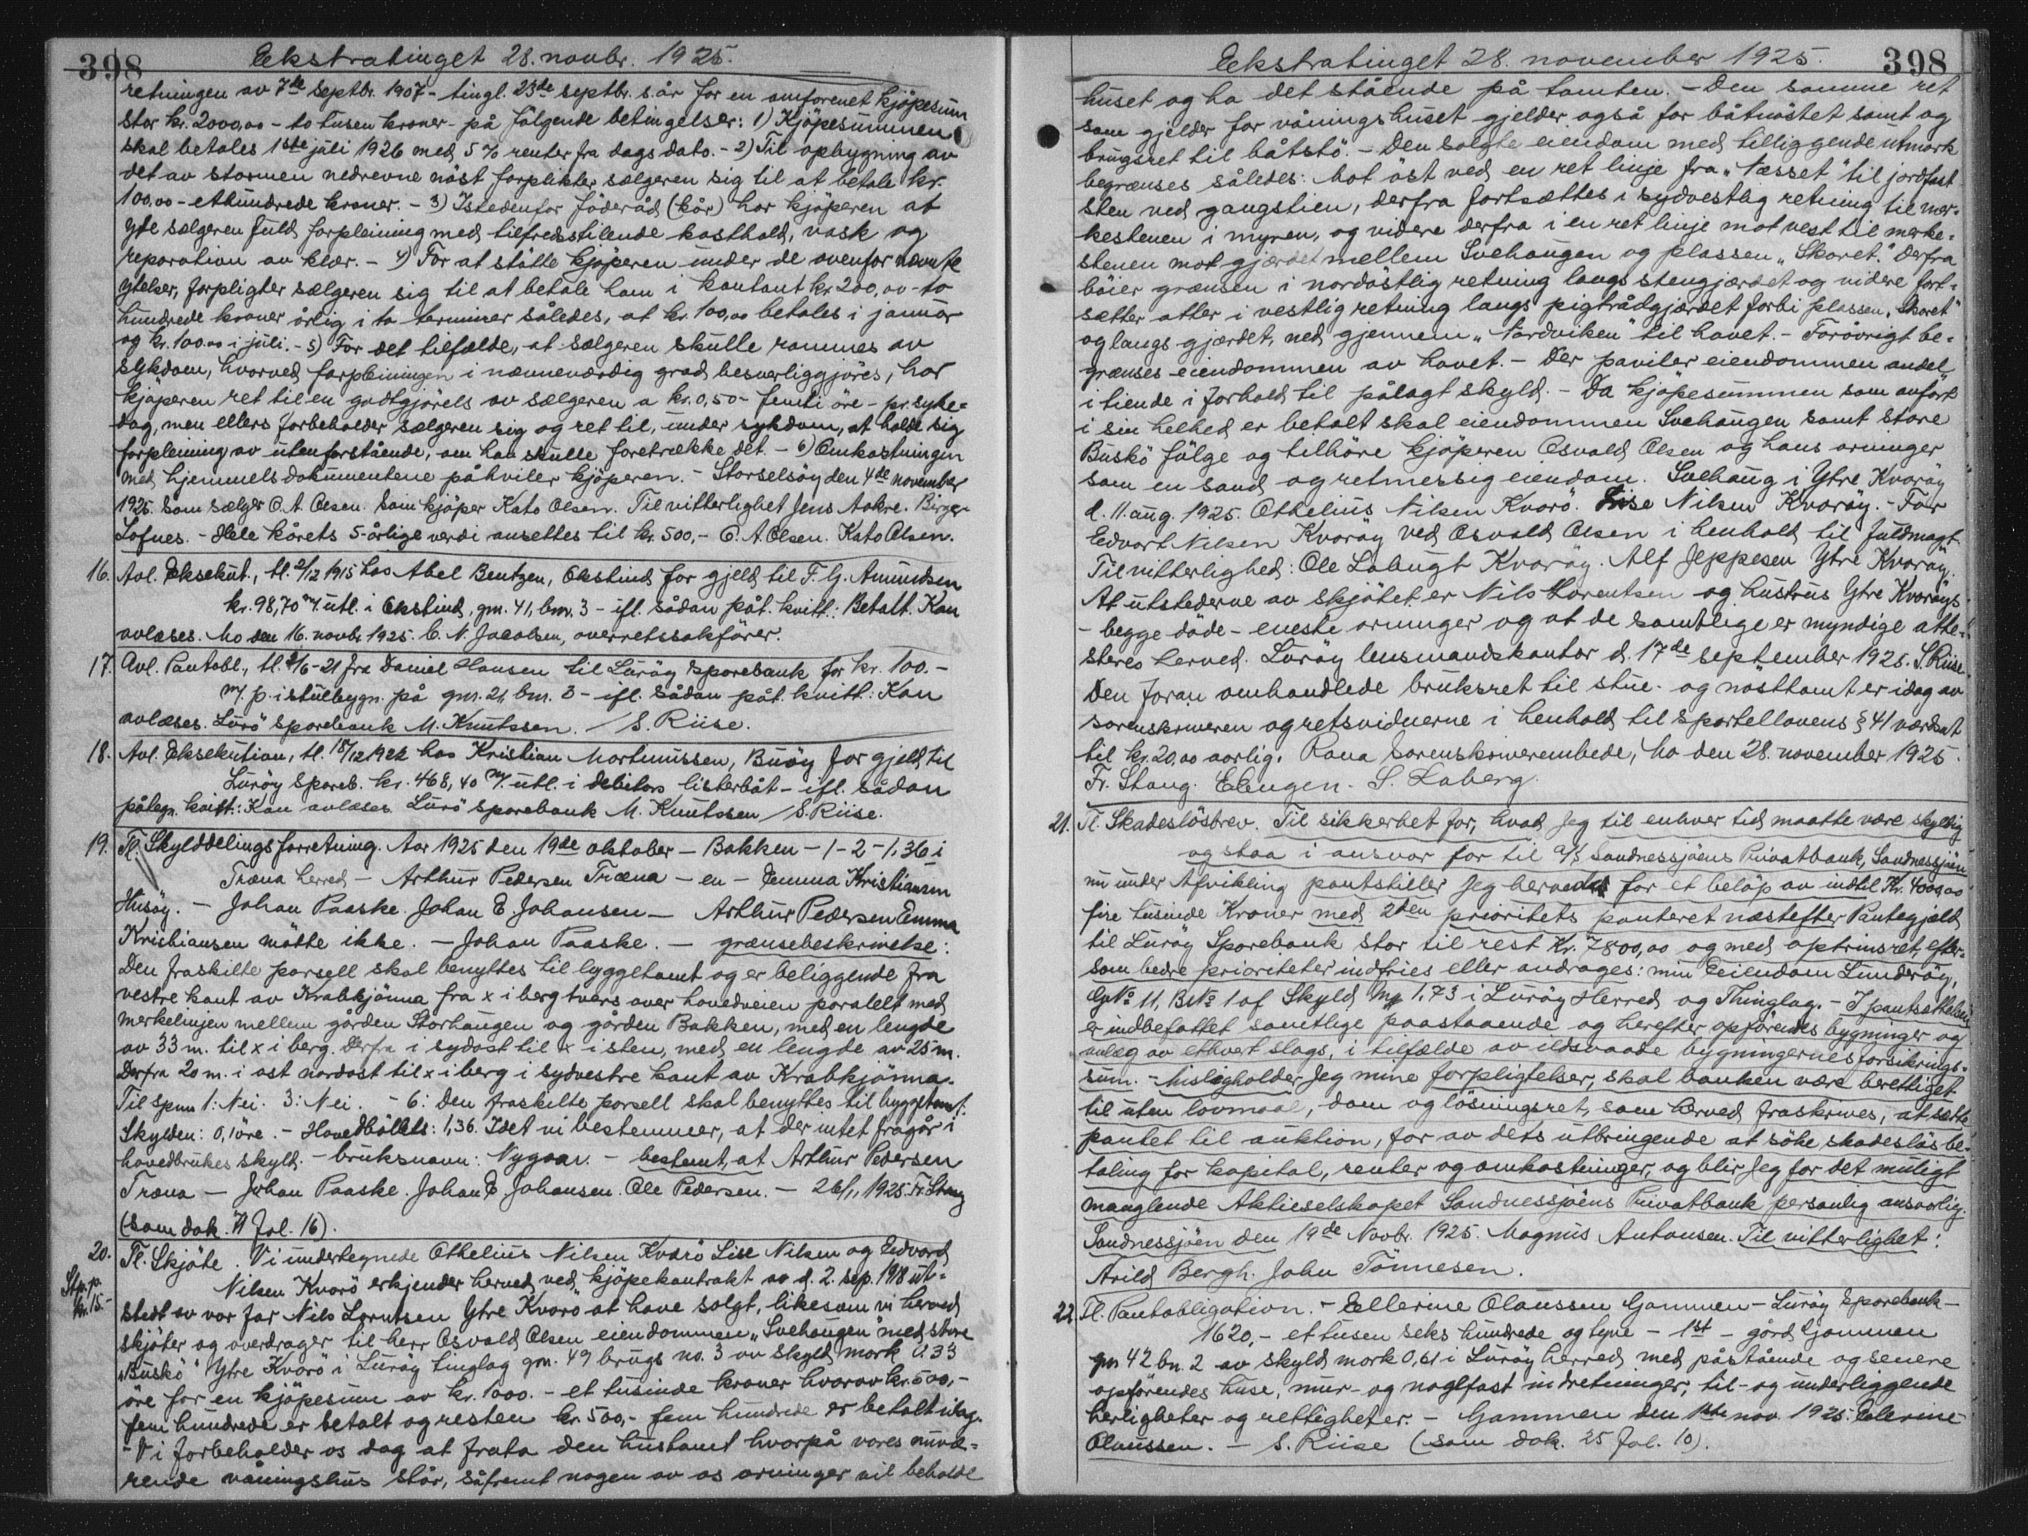 398
Ekstratinget 28. novbr. 1925.
retningen av 7de septbr. 1907 - tingl. 23de septbr. s. år for en omforenet kjöpesum
stor kr. 2000,00 - to tusen kroner - på fölgende betingelser: 1) Kjöpesummen
skal betales 1ste juli 1926 med 5 % renter fra dags dato. - 2) Til opbygning av
det av stormen nedrevne nöst forplikter sælgeren sig til at betale kr.
100,00 - ethundrede kroner. - 3) Istedenfor föderåd (kår) har kjöperen at
yde sælgeren fuld forpleining med tilfredsstilende kosthold, vask og
reparation av klær. - 4) For at stötte kjöperen under de ovenfor nævnte
ytelser, forpligter sælgeren sig til at betale ham i kontant kr 200,00 - to
hundrede kroner årlig i to terminer således, at kr. 100,00 betales i januar
og kr. 100.00 i juli. - 5) For det tilfælde, at sælgeren skulle rammes av
sykdom, hvorved forpleiningen i nævneværdig grad besverliggjöres, har
kjöperen ret til en godtgjörels av sælgeren a kr. 0,50 - femti öre - pr. syke-
dag, men ellers forbeholder sælgeren sig og ret til, under sykdom, at holde sig
forpleining av utenforstående, om han skulle foretrække det. - 6) Omkostningen
med hjemmelsdokumentene påhviler kjöperen. - Storselsöy den 4de november
1925. Som sælger O. A. Olsen. Som kjöper Kato Olsen. Til vitterlighet Jens Aakre. Birger
Lofnes. - Hele kårets 5-årlige verdi ansettes til kr. 500,- O. A. Olsen. Kato Olsen.
16. Avl. Eksekut., tl. 2/12 1915 hos Abel Bentzen, Okstind for gjeld til F. G. Amundsen
kr. 98,70 m/ utl. i Okstind, gm. 41, bnr. 3 - ifl. sådan påt. kvitt.: Betalt. Kan
avlæses. Mo den 16. novbr. 1925. C. N. Jacobsen, overretssakförer.
17. Avl. Pantobl., tl. 2/6-21 fra Daniel Hansen til Luröy Sparebank for kr. 100.-
m/ p. i stuebygn. på gm. 21 bnr. 3 - ifl. sådan påt. kvitt: Kan
avlæses. Lurö Sparebank M. Knutssen. / S. Riise.
18. Avl. Eksekution, tl. 15/12 1922 hos Kristian Mortinussen, Buöy for gjeld til
Luröy spareb. kr. 468,40 m/ utl. i debitors listerbåt - ifl. sådan
påtegn. kvitt.: Kan avlæses Lurö sparebank M. Knutssen / S. Riise.
19. Tl. Skylddelingsforretning. Aar 1925 den 19de oktober - Bakken - 1 - 2 - 1,36 i
Træna herred - Arthur Pedersen Træna - en - Emma Kristiansen
Husöy. - Johan Paaske. Johan E Johansen - Arthur Pedersen Emma
Kristiansen mötte ikke. - Johan Paaske. - grænsebeskrivelse:
Den fraskilte parsell skal benyttes til byggetomt og er beliggende fra
vestre kant av Krabkjönna fra x i berg tvers over hovedveien paralelt med
merkelinjen mellem gården Storhaugen og gården Bakken, med en lengde
av 33 m. til x i berg. Derfra i sydost til x i sten, med en lengde av 25 m.
Derfra 20 m. i ost nordost til x i berg i sydvestre kant av Krabkjönna.
Til spm 1: Nei. 3: Nei. - 6: Den fraskilte parsell skal benyttes til byggetomt.
Skylden: 0,1 öre. - Hovedbölets: 1,36. Idet vi bestemmer, at der intet fragår i
hovedbrukes skyld. - bruksnavn: Nygaar. - bestemt, at Arthur Pedersen
Træna - Johan Paaske. Johan E Johansen. Ole Pedersen. - 26/11 1925. Fr. Stang
(som dok. 71 fol. 16).
20. Tl. Skjöte. Vi undertegnede Othelius Nilsen Kvarö Lise Nilsen og Edvard
Stp. p.
kr. 15.-
Nilsen Kvarö erkjender herved ved kjöpekontrakt av d. 2. sep. 1918 ut-
stedt av vor far Nils Lorntsen Ytre Kvarö at have solgt, likesom vi herved
skjöter og overdrager til herr Osvald Olsen eiendommen "Svehaugen" med store
"Buskö" Ytre Kvarö i Luröy tinglag gm. 49 brugs no. 3 av skyld mork 0 33
öre for en kjöpesum av kr. 1000.- et tusinde kroner hvorav kr. 500,-
fem hundrede er betalt og resten kr. 500,- fem hundrede er betalt idag.
- Vi forbeholder os dog at frata den hustomt hvorpå vores nuvæ-
rende våningshus står, såfremt nogen av os arvinger vil beholde
398
Ekstratinget 28. november 1925.
huset og ha det stående på tomten. - Den samme ret
som gjelder for våningshuset gjelder også for båtnöstet samt og
brugsret til båtstö. - Den solgte eiendom med tilliggende utmark
begrænses således: Mot öst ved en ret linje fra "Næsset" til jordfast
sten ved gangstien, derfra fortsættes i sydvestlig retning til mer-
kestenen i myren, og videre derfra i en ret linje mot vest til merke-
stenen mot gjærdet mellem Svehaugen og plassen "Skaret." Derfra
böier grænsen i nordöstlig retning langs stengjærdet og videre fort-
sætter atter i vestlig retning langs pigtrådgjærdet forbi plassen "Skaret"
og langs gjærdet, ned gjennem "Nordviken" til havet. - Foröv­rigt be-
grænses eiendommen av havet. - Der paviler eiendommen andel
i tiende i forhold til pålagt skyld. - Da kjöpesummen som anfört
i sin helhed er betalt skal eiendommen Svehaugen samt store
Buskö fölge og tilhöre kjöperen Osvald Olsen og hans arvinger
som en sand og retmessig eiendom. Svehaug i Ytre Kvaröy
d. 11. aug. 1925. Othelius Nilsen Kvarö. Lise Nilsen Kvaröy. - For
Edvart Nilsen Kvaröy ved Osvald Olsen i henhold til fuldmagt.
Til vitterlighed: Ole Labugt Kvaröy. Alf Jeppesen Ytre Kvaröy.
At utstederne av skjötet er Nils Lorentsen og hustrus Ytre Kvaröys
- begge döde - eneste arvinger og at de samtlige er myndige atte-
steres herved. Luröy lensmandskontor d. 17de september 1925. S. Riise.
Den foran omhandlede bruksret til stue- og nösttomt er idag av
sorenskriveren og retsvidnerne i henhold til sportellovens § 41 værdsat
til kr. 20,00 aarlig. Rana Sorenskriverembede, Mo den 28. november 1925.
Fr. Stang. E Engen. S. Laberg.
21. Tl. Skadeslösbrev. Til sikkerhet for, hvad Jeg til enhver tid maatte være skyldig
og staa i ansvar for til A/S Sandnessjöens Privatbank, Sandnessjöen
nu under Afvikling pantstiller Jeg herved for et belöp av indtil Kr. 4000,00
fire tusinde Kroner med 2den prioritets panteret næstefter Pantegjeld
til Luröy Sparebank stor til rest Kr. 7800,00 og med optrinsret, efter-
som bedre prioriteter indfries eller avdrages: min Eiendom Lunderöy,
Gr No 11, Br No 1 af Skyld M 1.73 i Luröy Herred og Thinglag. - I pantsættelsen
er indbefattet samtlige paastaaende og herefter opförendes bygninger og
anlæg av ethvert slags, i tilfælde av ildsvaade bygningernes forsikrings-
sum. - Misligholder Jeg mine forpligtelser, skal banken være berettiget
til uten lovmaal, dom og lösningsret, som herved fraskrives, at sætte
pantet til auktion, for av dets utbringende at söke skadeslös be-
taling for kapital, renter og omkostninger, og blir Jeg for det muligt
manglende Aktieselskapet Sandnessjöens Privatbank personlig ansvarlig.
Sandnessjöen den 19de Novbr. 1925. Magnus Antonsen. Til vitterlighet:
Arild Bergh. John Tönnesen.
22. Tl. Pantobligation. - Ellerine Olaussen Gammen - Luröy Sparebank -
1620,- et tusen seks hundrede og tyve - 1st - gård Gammen
gm 42 bn. 2 av skyld mork 0,61 i Luröy herred med påstående og senere
opförendes huse, mur- og naglfast indretninger, til- og underliggende
herligheter og rettigheter. - Gammen den 1ste nov. 1925. Ellerine
Olaussen. - S. Riise (som dok. 25 fol. 10).